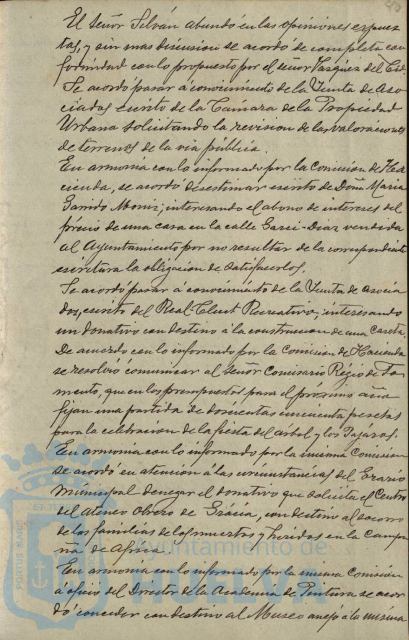 El Señor Silván abundó en las opiniones expues-
tas, y sin mas discusion se acordó de completa con-
formidad con lo propuesto por el señor Vazquez del Cid.
Se acordó pasar á conocimiento de la Junta de Aso-
ciados escrito de la Cámara de la Propiedad
Urbana solicitando la revision de las valoraciones
de terrenos de la via pública.
En armonia con lo informado por la Comision de Ha-
cienda, se acordó desestimar escrito de Doña Maria
Garrido Moniz, interesando el abono de intereses del
précio de una casa en la calle Garci-Diaz vendida
al Ayuntamiento por no resultar de la correspondiente
escritura la obligacion de satisfacerlos.
Se acordó pasar á conocimiento de la Junta de Asocia-
dos, escrito del Real Club Recreativo, interesando
un donativo con destino á la construccion de una caseta.
De acuerdo con lo informado por la Comision de Hacienda
se resolvió comunicar al Señor Comisario Régio de Fo-
mento, que en los presupuestos para el próximo año
fijan una partida de doscientas cincuenta pesetas
para la celebracion de la fiesta del árbol y los Pájaros.
En armonia con lo informado por la misma Comision
se acordó en atención á las circunstancias del Erario
Municipal denegar el donativo que solicita el Centro
del Ateneo Obrero de Grácia, con destino al socorro
de las familias de los muertos y heridos en la campa-
ña de Africa.
En armonia con lo informado por la misma Comision
á oficio del Director de la Academia de Pintura se acor-
dó conceder con destino al Museo anejo á la misma
Ayuntamiento de
HUELVA
PORTUS MARIS